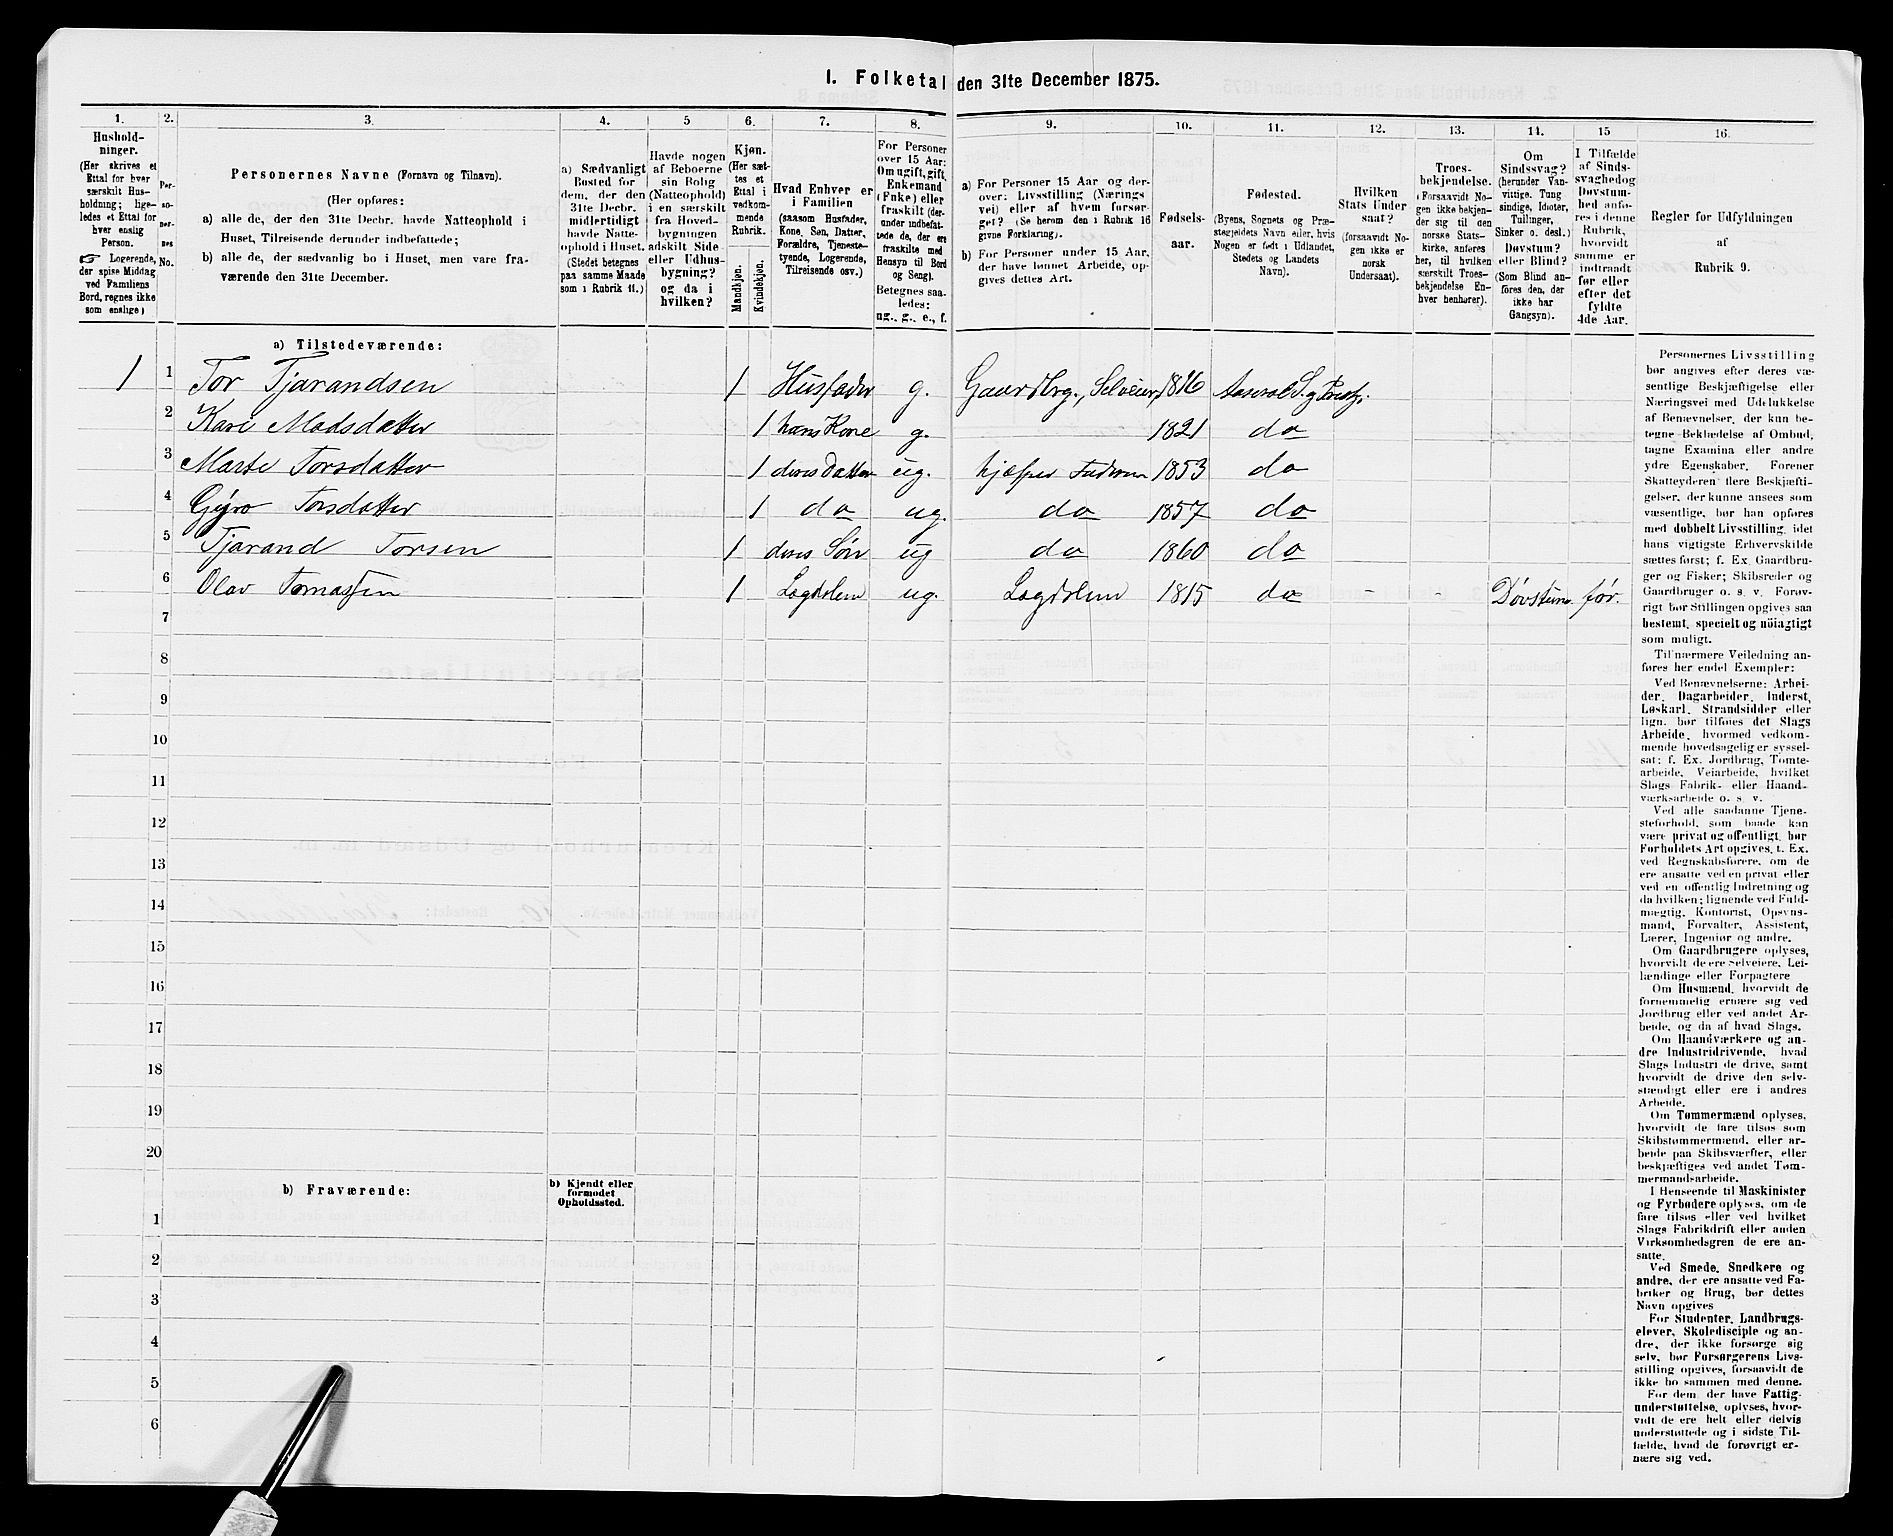 I. Folketal den 31te December 1875.
1. 2. 3. 4. 5 6. 7. 8. 9. 10. 11. 12. 13. 14. 15 16.
Hushold-
ninger.
(Her skrives et
Ettal for hver
særskilt Hus-
holdning; lige-
ledes et Ettal for
hver enslig
Person.
☞ Logerende,
der spise Middag
ved Familiens
Bord, regnes ikke
som enslige)
Per-
so-
ner-
nes
No.
Personernes Navne (Fornavn og Tilnavn).
(Her opføres:
a) alle de, der den 31te Decbr. havde Natteophold i
Huset, Tilreisende derunder indbefattede;
b) alle de, der sædvanlig bo i Huset, men vare fra-
værende den 31te December.
a) Sædvanligt
Bosted for
dem, der den
31te Decbr.
midlertidigt
havde Natte-
ophold i Huset.
(Stedet betegnes
paa samme Maade
som i Rubrik 11.)
Havde nogen
af Beboerne
sin Bolig
(Natteophold)
i en særskilt
fra Hoved-
bygningen
adskilt Side
eller Udhus-
bygning?
og da i
hvilken?
Kjøn.
(Her sæt-
tes et
Ettal i
vedkom-
mende
Rubrik.
Mandkjøn.
Kvindekjøn.
Hvad Enhver er
i Familien
(saasom Husfader,
Kone, Søn, Datter,
Forældre, Tjeneste-
tyende, Logerende,
Tilreisende osv.)
For Personer
over 15 Aar:
Om ugift, gift,
Enkemand
(Enke) eller
fraskilt (der-
under indbefat-
tede de, der ere
fraskilte med
Hensyn til Bord
og Seng).
Betegnes saa-
ledes:
ug., g., e., f.
a) For Personer 15 Aar og der-
over: Livsstilling (Nærings
vei) eller af hvem forsør-
get? (Se herom den i Rubrik 16
givne Forklaring).
b) For Personer under 15 Aar,
der have lønnet Arbeide, op-
gives dettes Art.
Fødsels-
aar.
Fødested.
(Byens, Sognets og Præ-
stegjeldets Navn eller, hvis
Nogen er født i Udlandet,
Stedets og Landets
Navn).
Hvilken
Stats Under
saat?
(forsaavidt No-
gen ikke er
norsk
Undersaat).
Troes-
bekjendelse.
(Forsaavidt No-
gen ikke bekjen-
der sig til den
norske Stats-
kirke, anføres
her, til hvilken
særskilt Troes-
bekjendelse En-
hver henhører).
Om
Sindssvag?
(herunder Van-
vittige, Tung
sindige, Idioter,
Tullinger,
Sinker o. desl.)
Døvstum?
eller Blind?
(Som Blind an-
føres den, der
ikke har
Gangsyn).
I Tilfælde
af Sinds-
svaghed og
Døvstum-
hed anfø-
res i denne
Rubrik,
hvorvidt
samme er
indtraadt
før eller
efter det
fyldte
4de Aar.
Regler for Udfyldningen
af
Rubrik 9.
a) Tilstedeværende:
1 1 Tor Tjarandsen 1 Husfader g. Gaardbrg., Selveier, 1816 Aaseral S. og Prestg.
2 Kari Madsdatter 1 hans Kone g. 1821 do
3 Marte Torsdatter 1 deres Datter ug. hjælper Faderen 1853 do
4 Gyro Torsdatter 1 do ug. do 1857 do
5 Tjarand Torsen 1 deres Søn ug do 1860 do
6 Olav Tomassen 1 Lægdslem ug. Lægdslem 1815 do - - Døvstum før.
7
8
9
10
11
12
13
14
15
16
17
18
19
20
b) Fraværende:
b) Kjendt eller
formodet
Opholdssted.
1
2
3
4
5
6
Personernes Livsstilling
bør angives efter deres væ-
sentlige Beskjæftigelse eller
Næringsvei med Udelukkelse
af Benævnelser, der kun be-
tegne Beklædelse af Ombud,
tagne Examina eller andre
ydre Egenskaber. Forener
Skatteyderen flere Beskjæfti-
gelser, der kunne ansees som
væsentlige, bør han opføres
med dobbelt Livsstilling, idet
hans vigtigste Erhvervskilde
sættes først; f. Ex. Gaardbru-
ger og Fisker; Skibsreder og
Gaardbruger o. s. v. Forøv-
rigt bør Stillingen opgives saa
bestemt, specielt og nöiagtigt
som muligt.
Til nærmere Veiledning an-
føres her endel Exempler:
Ved Benævnelserne: Arbei-
der, Dagarbeider, Inderst,
Løskarl, Strandsidder eller
lign. bør tilføies det Slags
Arbeide, hvormed vedkom-
mende hovedsagelig er syssel-
sat; f. Ex. Jordbrug, Tomte-
arbeide, Veiarbeide, hvilket
Slags Fabrik- eller Haand-
værksarbeide o. s. v.
Ved alle saadanne Tjene-
steforhold, som baade kan
være privat og offentligt, bør
Forholdets Art opgives, t. Ex.
ved Regnskabsførere, om de
ere ansatte ved en privat eller
ved en offentlig Indretning og
da hvilken; lignende ved Fuld-
mægtig, Kontorist, Opsyns-
mand, Forvalter, Assistent,
Lærer, Ingeniør og andre.
Om Gaardbrugere oplyses,
hvorvidt de ere Selveiere, Lei-
lændinge eller Forpagtere
Om Husmænd, hvorvidt de
fornemmelig ernære sig ved
Jordbrug eller ved andet Ar-
beide, og da af hvad Slags.
Om Haandværkere og an-
dre Industridrivende, hvad
Slags Industri de drive, samt
hvorvidt de drive den selv-
stændigt eller ere i andres
Arbeide.
Om Tømmermænd oplyses,
hvorvidt de fare tilsøs som
Skibstømmermænd, eller ar-
beide paa Skibsværfter, eller
beskjæftiges ved andet Tøm-
mermandsarbeide.
I Henseende til Maskinister
og Fyrbødere oplyses, om de
fare tilsøs eller ved hvilket
Slags Fabrikdrift eller anden
Virksomhedsgren de ere an-
satte.
Ved Smede, Snedkere og
andre, der ere ansatte ved Fa-
briker og Brug, bør dettes
Navn opgives
For Studenter, Landbrugs-
elever, Skoledisciple og an-
dre, der ikke forsørge sig
selv, bør Forsørgerens Livs-
stilling opgives, forsaavidt de
ikke bo sammen med denne.
For dem, der have Fattig-
understøttelse, oplyses, hvor-
vidt de ere helt eller delvis
understøttede og i sidste Til-
fælde, hvad de forøvrigt er-
nære sig ved.